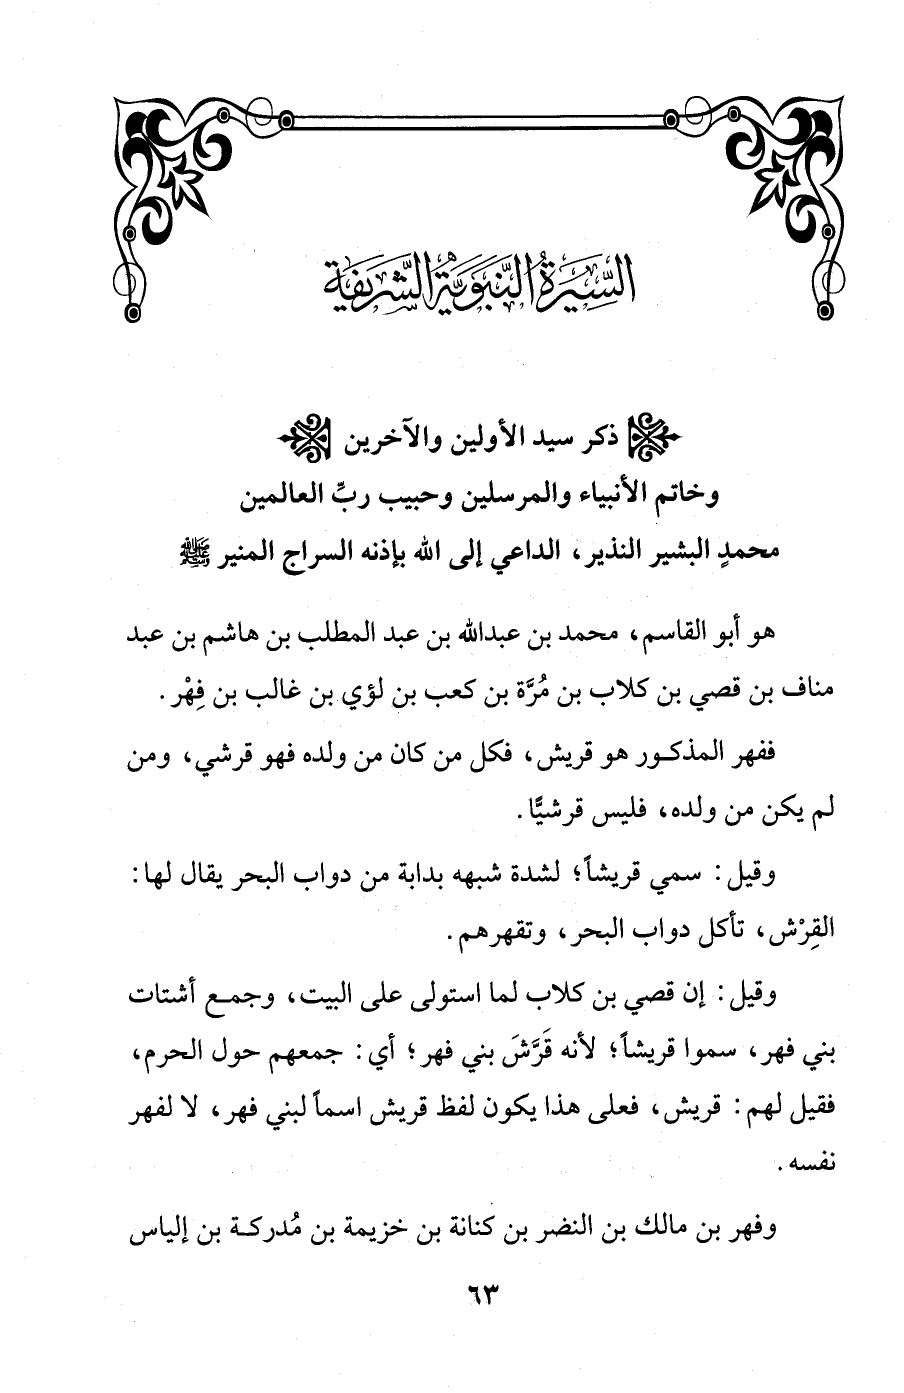 السِّيرَةُ النَّبَوِيَّةُ الشَّرِيفَةِ
ذكر سيد الأولين والآخرين
وخاتم الأنبياء والمرسلين وحبيب ربِّ العالمين
محمدٍ البشير النذير، الداعي إلى الله بإذنه السراج المنير ﷺ
هو أبو القاسم، محمد بن عبدالله بن عبد المطلب بن هاشم بن عبد
مناف بن قصي بن كلاب بن مُرَّة بن كعب بن لؤي بن غالب بن فِهْر.
ففهر المذكور هو قريش، فكل من كان من ولده فهو قرشي، ومن
لم يكن من ولده، فليس قرشيًّا.
وقيل: سمي قريشاً؛ لشدة شبهه بدابة من دواب البحر يقال لها:
القِرْش، تأكل دواب البحر، وتقهرهم.
وقيل: إن قصي بن كلاب لما استولى على البيت، وجمع أشتات
بني فهر، سموا قريشاً؛ لأنه قَرَّشَ بني فهر؛ أي: جمعهم حول الحرم،
فقيل لهم: قريش، فعلى هذا يكون لفظ قريش اسماً لبني فهر، لا لفهر
نفسه.
وفهر بن مالك بن النضر بن كنانة بن خزيمة بن مُدركة بن إلياس
٦٣